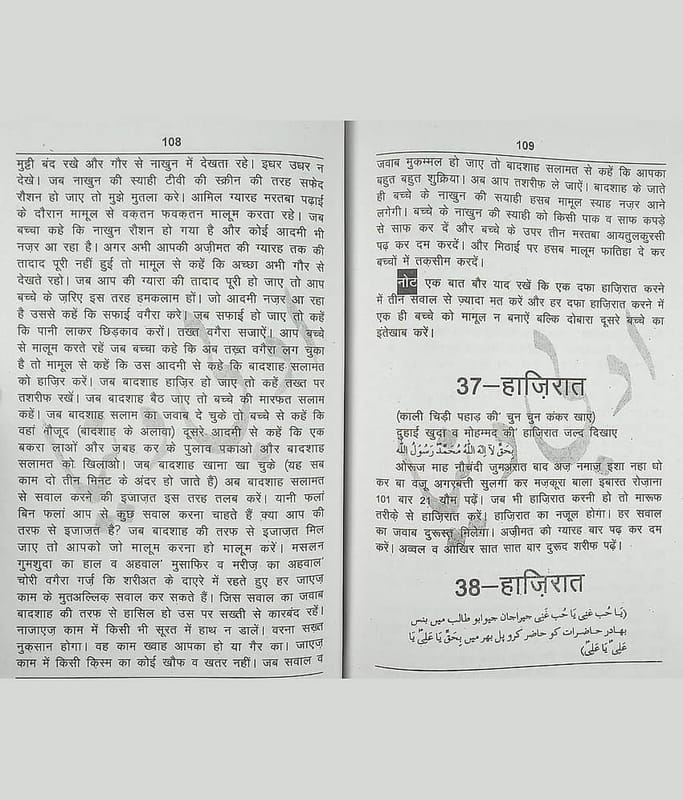 108
मुट्ठी बंद रखे और गौर से नाखुन में देखता रहे। इधर उधर न
देखे। जब नाखुन की स्याही टीवी की स्क्रीन की तरह सफेद
रौशन हो जाए तो मुझे मुतला करे। आमिल ग्यारह मरतबा पढ़ाई
के दौरान मामूल से वक्तन फवक्तन मालूम करता रहे। जब
बच्चा कहे कि नाखुन रौशन हो गया है और कोई आदमी भी
नज़र आ रहा है। अगर अभी आपकी अज़ीमत की ग्यारह तक की
तादाद पूरी नहीं हुई तो मामूल से कहें कि अच्छा अभी गौर से
देखते रहो। जब आप की ग्यारा की तादाद पूरी हो जाए तो आप
बच्चे के ज़रिए इस तरह हमकलाम हों। जो आदमी नज़र आ रहा
है उससे कहें कि सफाई वगैरा करे। जब सफाई हो जाए तो कहें
कि पानी लाकर छिड़काव करों। तख्त वगैरा सजाऐं। आप बच्चे
से मालूम करते रहें जब बच्चा कहे कि अब तख़्त वगैरा लग चुका
है तो मामूल से कहें कि उस आदमी से कहे कि बादशाह सलामत
को हाज़िर करें। जब बादशाह हाज़िर हो जाए तो कहें तख्त पर
तशरीफ रखें। जब बादशाह बैठ जाए तो बच्चे की मारफत सलाम
कहें। जब बादशाह सलाम का जवाब दे चुके तो बच्चे से कहें कि
वहां मौजूद (बादशाह के अलावा) दूसरे आदमी से कहें कि एक
बकरा लाओं और ज़बह कर के पुलाव पकाओ और बादशाह
सलामत को खिलाओ। जब बादशाह खाना खा चुके (यह सब
काम दो तीन मिनट के अंदर हो जाते हैं) अब बादशाह सलामत
से सवाल करने की इजाज़त इस तरह तलब करें। यानी फलां
बिन फलां आप से कुछ सवाल करना चाहते हैं क्या आप की
तरफ से इजाज़त है? जब बादशाह की तरफ से इजाज़त मिल
जाए तो आपको जो मालूम करना हो मालूम करें। मसलन
गुमशुदा का हाल व अहवाल मुसाफिर व मरीज़ का अहवाल
चोरी वगैरा गर्ज़ कि शरीअत के दाएरे में रहते हुए हर जाएज़
काम के मुतअल्लिक् सवाल कर सकते हैं। जिस सवाल का जवाब
बादशाह की तरफ से हासिल हो उस पर सख्ती से कारबंद रहें।
नाजाएज़ काम में किसी भी सूरत में हाथ न डालें। वरना सख्त
नुक्सान होगा। वह काम ख्वाह आपका हो या गैर का। जाएज़
काम में किसी क़िस्म का कोई खौफ व खतर नहीं। जब सवाल व
109
जवाब मुकम्मल हो जाए तो बादशाह सलामत से कहें कि आपका
बहुत बहुत शुक्रिया। अब आप तशरीफ ले जाऐं। बादशाह के जाते
ही बच्चे के नाखुन की सयाही हसब मामूल स्याह नज़र आने
लगेगी। बच्चे के नाखुन की स्याही को किसी पाक व साफ कपड़े
से साफ कर दें और बच्चे के उपर तीन मरतबा आयतुलकुरसी
पढ़ कर दम करदें। और मिठाई पर हसब मालूम फातिहा दे कर
बच्चों में तक़सीम करदें।
नोट एक बात बौर याद रखें कि एक दफा हाज़िरात करने
में तीन सवाल से ज़्यादा मत करें और हर दफा हाज़िरात करने में
एक ही बच्चे को मामूल न बनाऐं बल्कि दोबारा दूसरे बच्चे का
इंतेखाब करें।
37–हाज़िरात
(काली चिड़ी पहाड़ की चुन चुन कंकर खाए)
दुहाई खुदा व मोहम्मद की हाज़िरात जल्द दिखाए
بحق لا الہ الا اللہ محمد رسول اللہ
ओरूज माह नौचंदी जुमअरात बाद अज़ नमाज़ इशा नहा धो
कर बा वजू अगरबत्ती सुलगा कर मज़कूरा बाला इबारत रोज़ाना
101 बार 21 यौम पढ़ें। जब भी हाज़िरात करनी हो तो मारूफ
तरीक़े से हाज़िरात करें। हाज़िरात का नजूल होगा। हर सवाल
का जवाब दुरूस्त मिलेगा। अज़ीमत को ग्यारह बार पढ़ कर दम
करें। अव्वल व आखिर सात सात बार दुरूद शरीफ पढ़ें।
38–हाज़िरात
(یا حب غنی یا حب غنی جیراجان جیوابو طالب میں بنس
بھادر حاضرات کو حاضر کرو پل بھر میں بحق یا علی یا
علی یا علی)